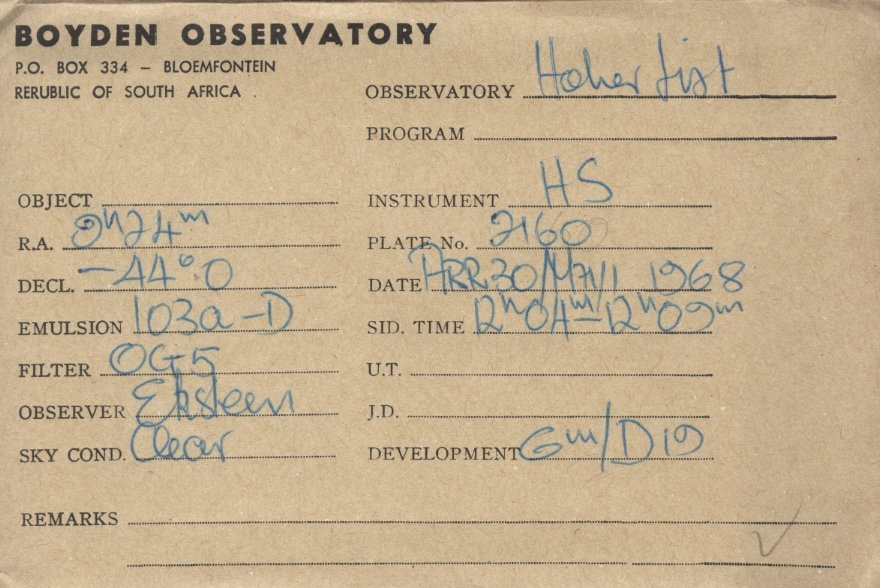 BOYDEN OBSERVATORY
P.O. BOX 334 – BLOEMFONTEIN
RERUBLIC OF SOUTH AFRICA
OBSERVATORY Hoher List
PROGRAM
OBJECT
INSTRUMENT HS
R.A. 9h24m
PLATE No. 2160
DECL. –44°.0
DATE APR 30/MAY 1 1968
EMULSION 103a–D
SID. TIME 12h04m–12h09m
FILTER OG5
U.T.
OBSERVER Eksteen
J.D.
SKY COND. Clear
DEVELOPMENT 6m/D19
REMARKS